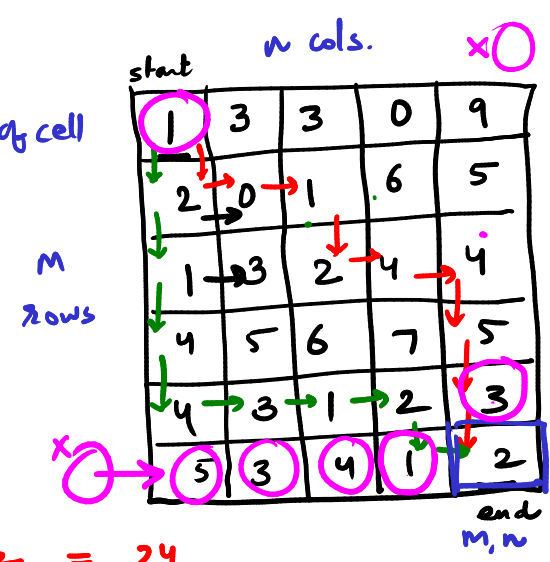 n cols.
x
start
of cell
1 3 3 0 9
2 0 1 6 5
M
rows
1 3 2 4 4
4 5 6 7 5
4 3 1 2 3
x
5 3 4 1 2
end
M, n
= 24